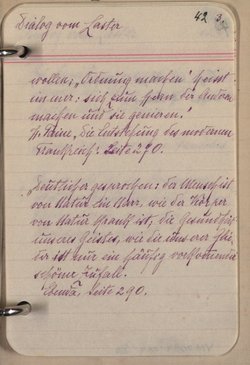 Dialog vom Laster
42 3.
wollen, „Ordnung machen" heisst
immer: sich zum Herrn der Anderen
machen und sie genieren."
H. Taine, „Die Entstehung des modernen
Frankreich". Seite 290.
„Deutlicher gesprochen: der Mensch ist
von Natur ein Narr, wie der Körper
von Natur krank ist, die Gesundheit
unseres Geistes, wie die unserer
ist nur ein häufig vorkommender
schöner Zufall."
Ebenda, Seite 290.